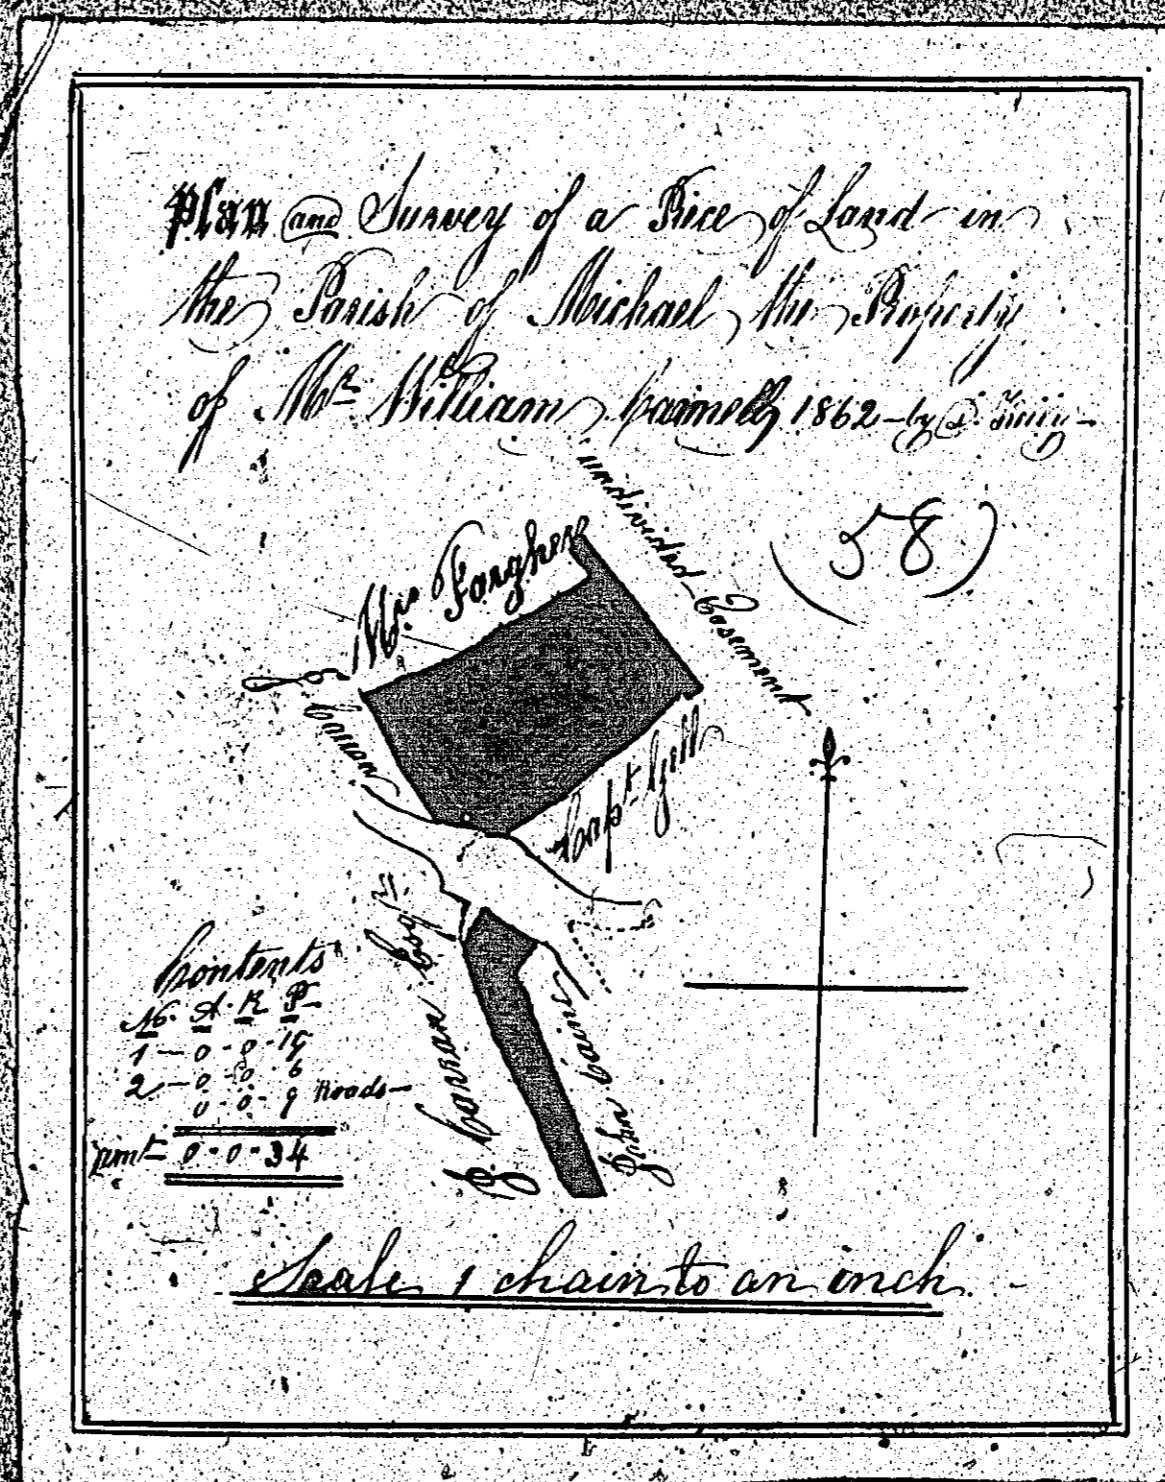 Plan and Survey of a Piece of Land in
the Parish of Michael, the Property
of Mr. William Cannell, 1862 - by
(58)
undivided Easement
Mrs. Fargher
J. Cannan
Capt. Gell
J. Corran Esqr.
John Caine
Contents
No. A. R. P.
1 - 0 - 0 - 19
2 - 0 - 0 - 6
0 - 0 - 9 Roads -
amt 0 - 0 - 34
Scale 1 chain to an inch.